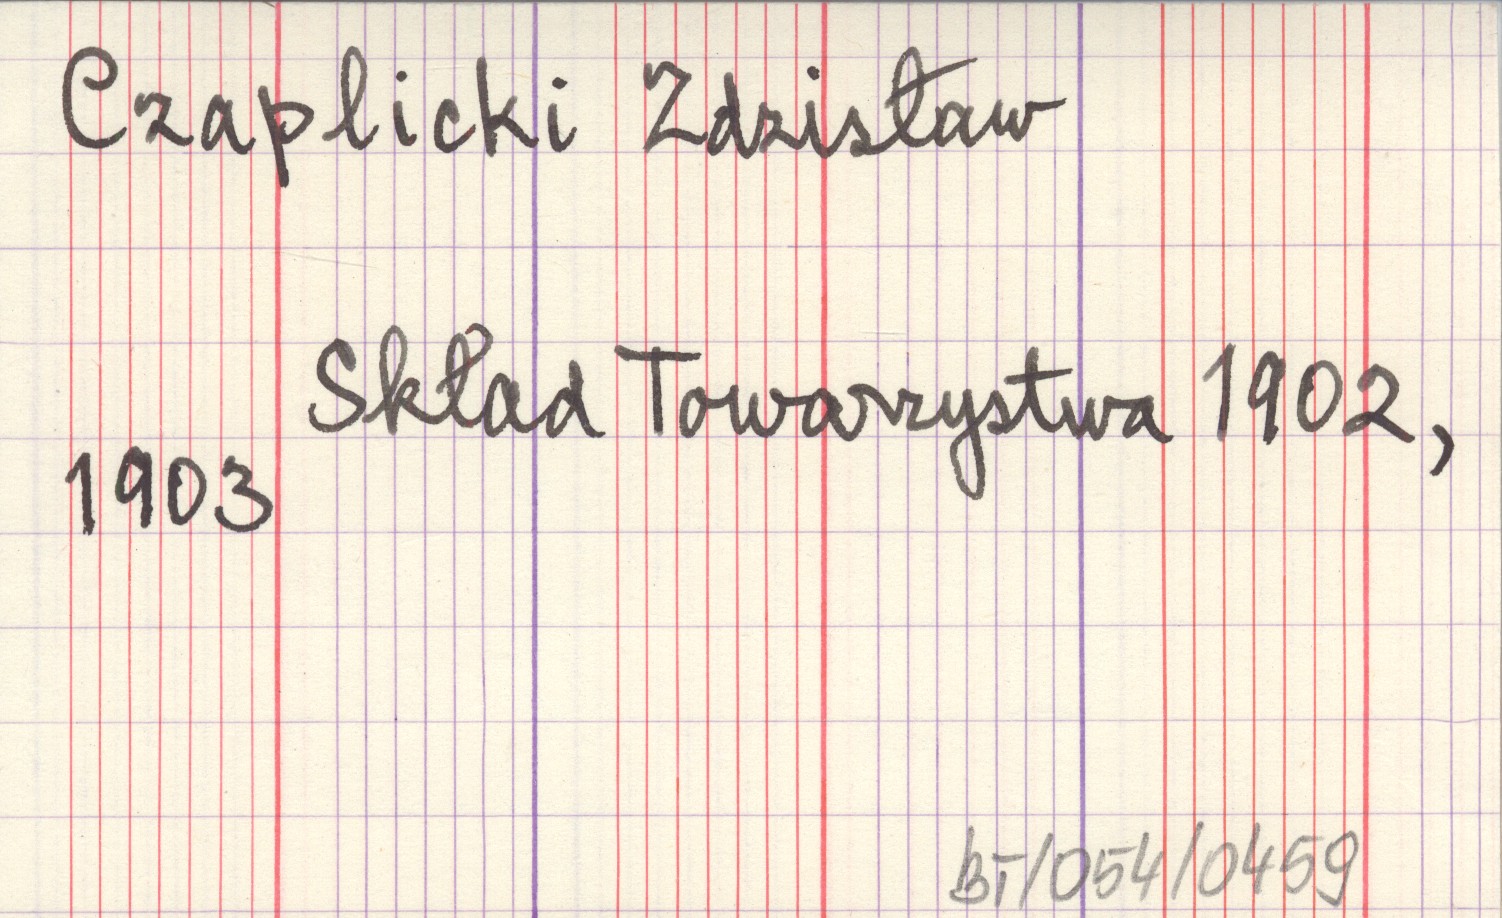 Czaplicki Zdzisław
Skład Towarzystwa 1902,
1903
BT/054/0459